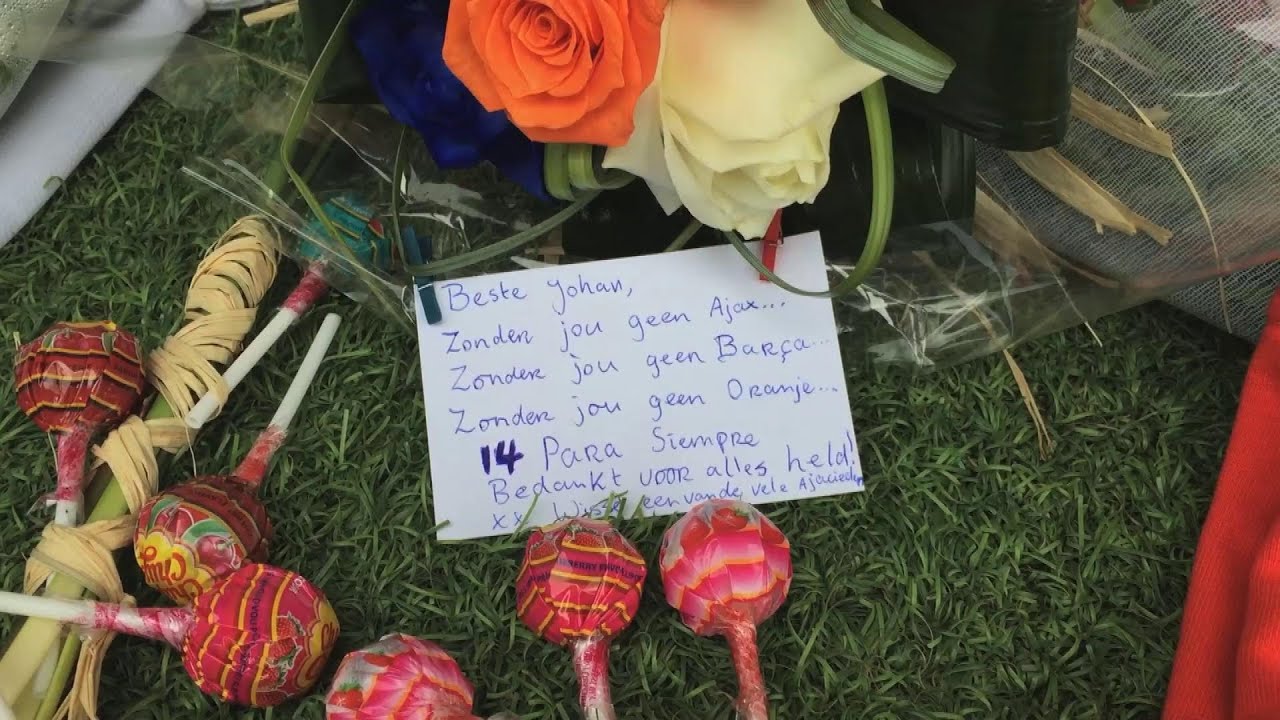 Beste Johan,
Zonder jou geen Ajax...
Zonder jou geen Barça...
Zonder jou geen Oranje...
14 Para Siempre
Bedankt voor alles held!
xx een van de vele Ajacieden